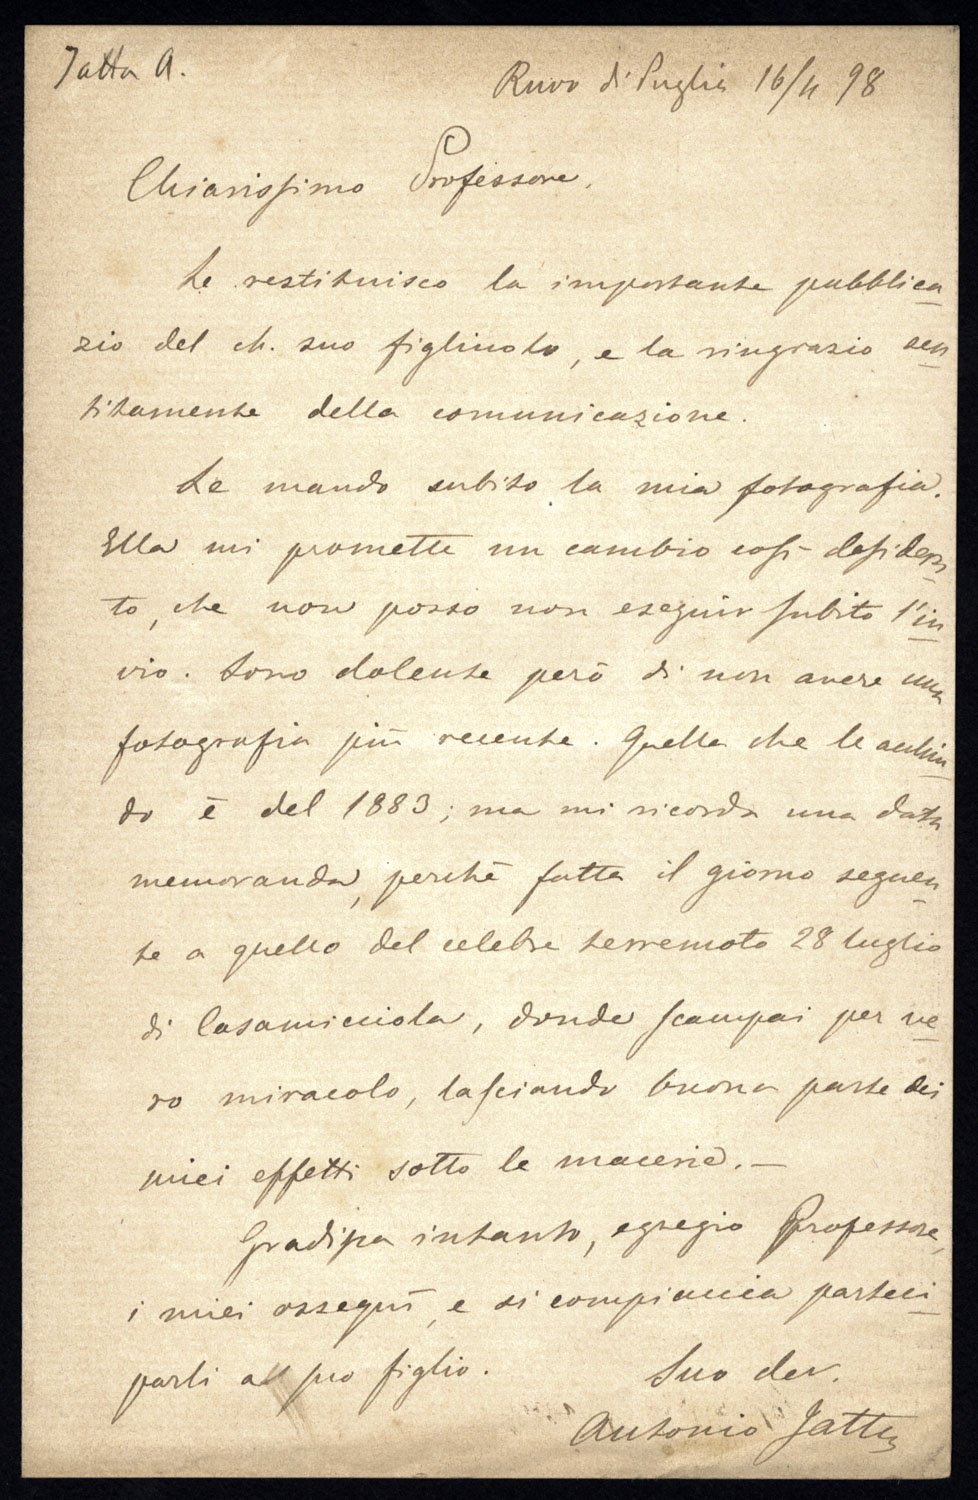 Jatta A.
Ruvo di Puglia 16/11 98
Chiarissimo Professore,
Le restituisco la importante pubblica
zio del ch. suo figliuolo, e la ringrazio sen
titamente della comunicazione.
Le mando subito la mia fotografia.
Ella mi promette un cambio così desidera
to, che non posso non eseguir subito l'in
vio. Sono dolente però di non avere una
fotografia più recente. Quella che le acchiu
do è del 1883; ma mi ricorda una data
memoranda, perchè fatta il giorno seguen
te a quello del celebre terremoto 28 luglio
di Casamicciola, donde scampai per ve
ro miracolo, lasciando buona parte dei
miei effetti sotto le macerie. —
Gradisca intanto, egregio Professore,
i miei ossequî, e si compiaccia parteci
parli al suo figlio.
Suo dev.
Antonio Jatta